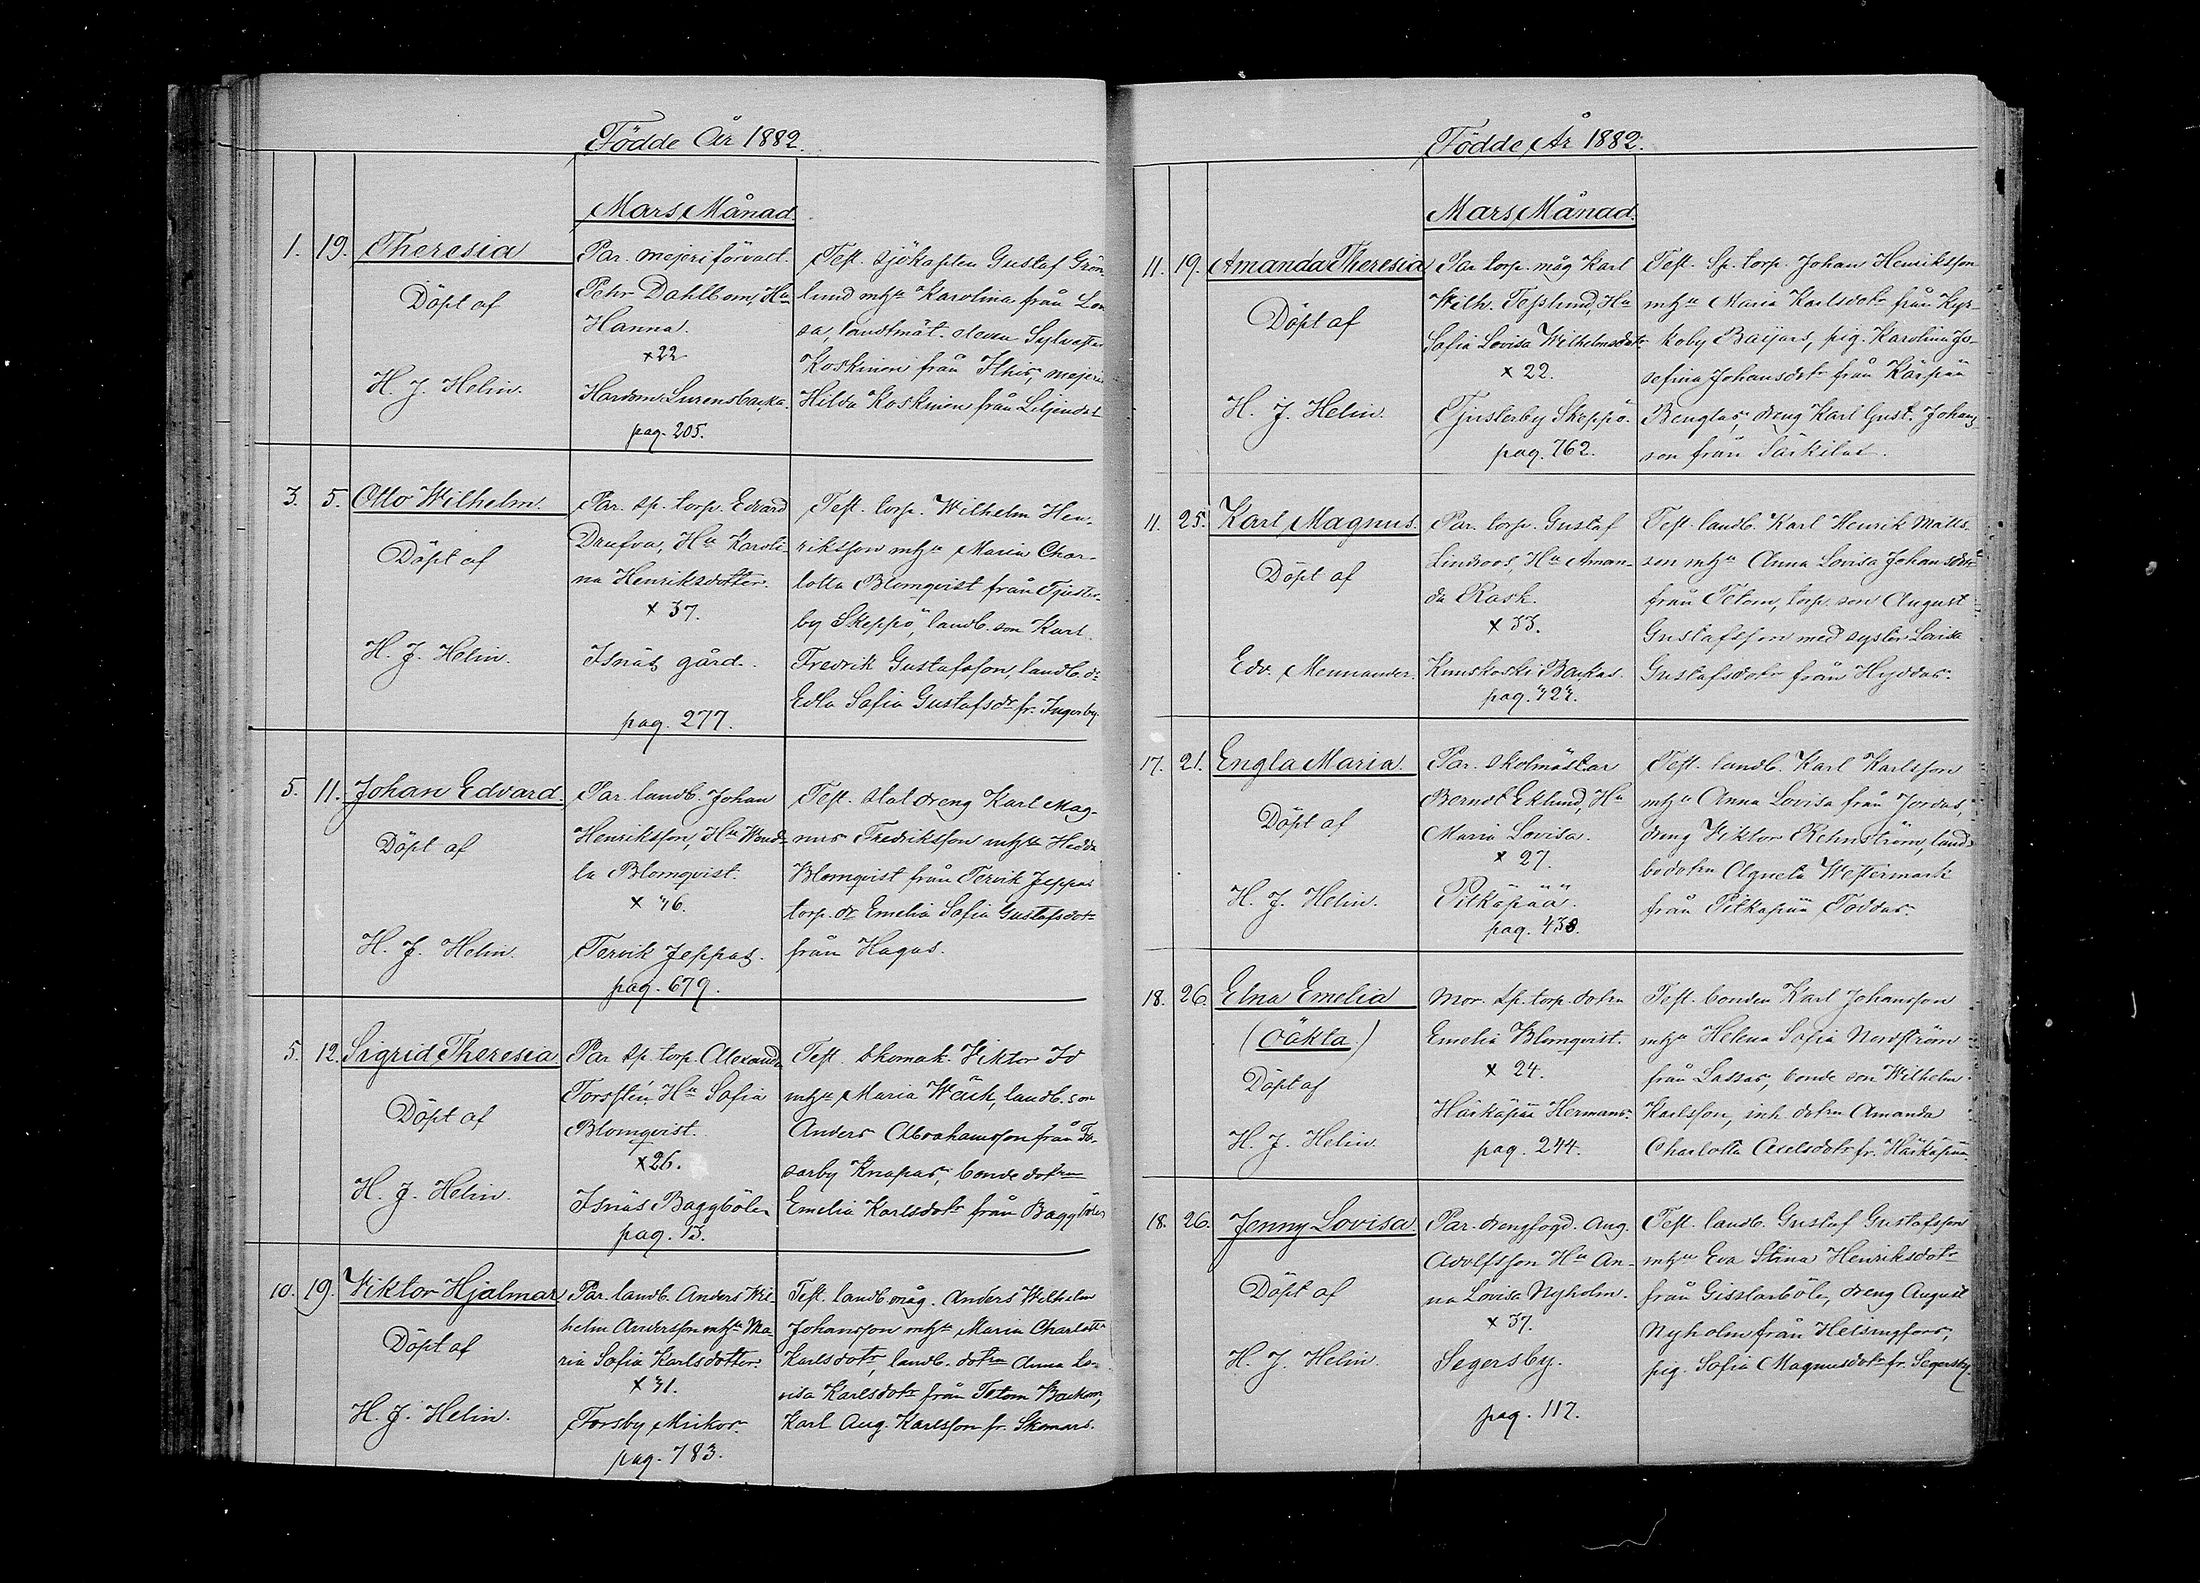 Födde År 1882.
Mars Månad.
1. 19. Theresia
Döpt af
H. J. Helin.
Par. mejeriförvalt.
Pehr Dahlbom, Hu
Hanna.
x 22
Hardom Surensbacka.
pag. 205.
Test. Sjökapten Gustaf Grön
lund mhu Karolina från Lovi
sa, landtmät. eleven Sylvester
Koskinen från Ithis, mejers
Hilda Koskinen från Liljendal
3. 5. Otto Wilhelm.
Döpt af
H. J. Helin.
Par. sp. torp. Edvard
Drufva, Hu Karoli-
na Henriksdotter.
x 37.
Isnäs gård.
pag. 277.
Test. torp. Wilhelm Hen-
riksson mhu Maria Char-
lotta Blomqvist från Tjuster-
by Skeppo, landb. son Karl
Fredrik Gustafsson, landb. dr
Edla Sofia Gustafsdr fr. Ingerby.
5. 11. Johan Edvard.
Döpt af
H. J. Helin.
Par. landb. Johan
Henriksson, Hu Wend-
la Blomqvist.
x 46.
Tervik Jeppas.
pag. 679.
Test. stat dreng Karl Mag-
nus Fredriksson mhu Hedda
Blomqvist från Tervik Jeppas
torp. dr Emelia Sofia Gustafsdotr
från Hagas.
5. 12. Sigrid Theresia
Döpt af
H. J. Helin.
Par sp. torp. Alexander
Forsstén, Hu Sofia
Blomqvist.
x 26.
Isnäs Baggböle
pag. 15.
Test. skomak. Viktor
mhu Maria Wäck, landb. son
Anders Abrahamsson från To-
sarby Knapas, bonde dotren
Emelia Karlsdotr från Baggböle
10. 19. Viktor Hjalmar
Döpt af
H. J. Helin.
Par. landb. Anders Wil-
helm Andersson mhu Ma-
ria Sofia Karlsdotter.
x 41.
Forsby Mickos.
pag. 783.
Test. landb. måg. Anders Wilhelm
Johansson mhu Maria Charlotta
Karlsdotr, landb. dotren Anna Lo-
visa Karlsdotr från Tetom Backom,
Karl Aug. Karlsson fr. Skomars.
Födde År 1882.
Mars Månad.
11. 19. Amanda Theresia
Döpt af
H. J. Helin.
Par torp. måg Karl
Wilh. Teslund, Hu
Sofia Lovisa Wilhelmsdotr
x 22.
Tjusterby Skeppo.
pag. 762.
Test. Sp. torp. Johan Henriksson
mhu Maria Karlsdotr från Kyr-
koby Baijars, pig. Karolina Jo-
sefina Johansdotr från Käspää
Benglas, dreng Karl Gust. Johans
son från Särkilax.
11. 25. Karl Magnus.
Döpt af
Edv. Mennander.
Par. torp. Gustaf
Lindroos, Hu Aman-
da Rask.
x 33.
Kuuskoski Backas.
pag. 424.
Test. landb. Karl Henrik Matts-
son mhu Anna Lovisa Johansdotr
från Tetom, torp. son August
Gustafsson med syster Lovisa
Gustafsdotr från Hyddas.
17. 21. Engla Maria.
Döpt af
H. J. Helin.
Par. skolmästar
Berndt Eklund, Hu
Maria Lovisa.
x 27.
Pitkäpää.
pag. 438.
Test. landb. Karl Karlsson
mhu Anna Lovisa från Jordas,
dreng Viktor Rehnström, land-
bodotren Agneta Westermark
från Pitkäpää Toddas.
18. 26. Elna Emelia
(oäkta)
Döpt af
H. J. Helin.
Mor. Sp. torp. dotren
Emelia Blomqvist.
x 24.
Härkäpää Hermans.
pag. 244.
Test. bonden Karl Johansson
mhu Helena Sofia Nordström
från Lassas, bonde son Wilhelm
Karlsson, inh. dotren Amanda
Charlotta Axelsdotr fr. Härkäpää
18. 26. Jenny Lovisa.
Döpt af
H. J. Helin.
Par. drengfogd. Aug.
Adolfsson Hu An-
na Lovisa Nyholm.
x 37.
Segersby.
pag. 112.
Test. landb. Gustaf Gustafsson
mhu Eva Stina Henriksdotr
från Gisslarböle, dreng August
Nyholm från Helsingfors,
pig. Sofia Magnusdotr fr. Segersby.